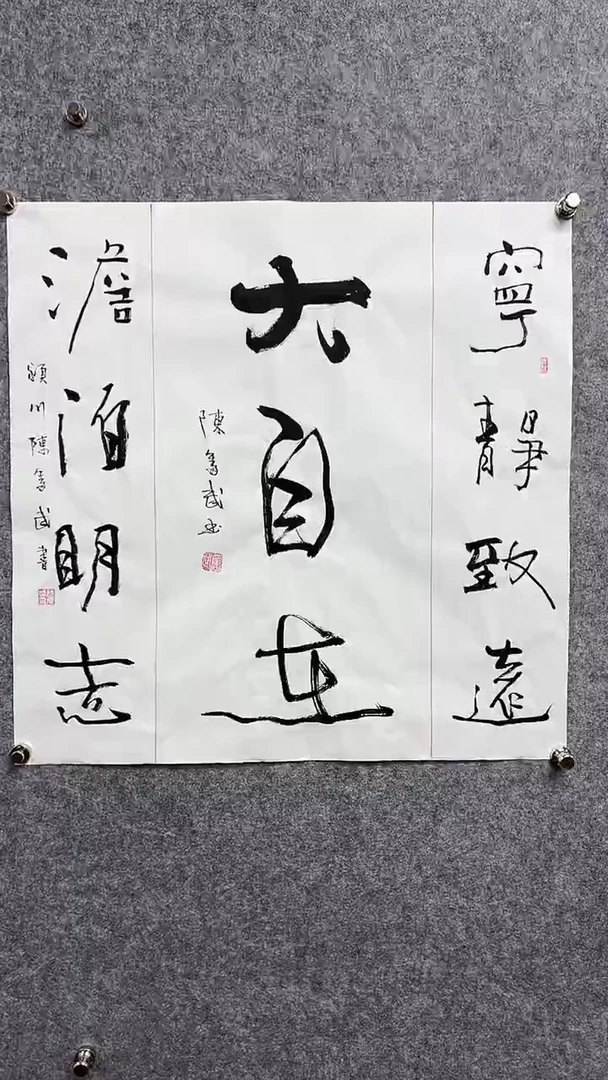 寧靜致遠
大自在
陳奮武书
澹泊明志
潁川陳奮武書